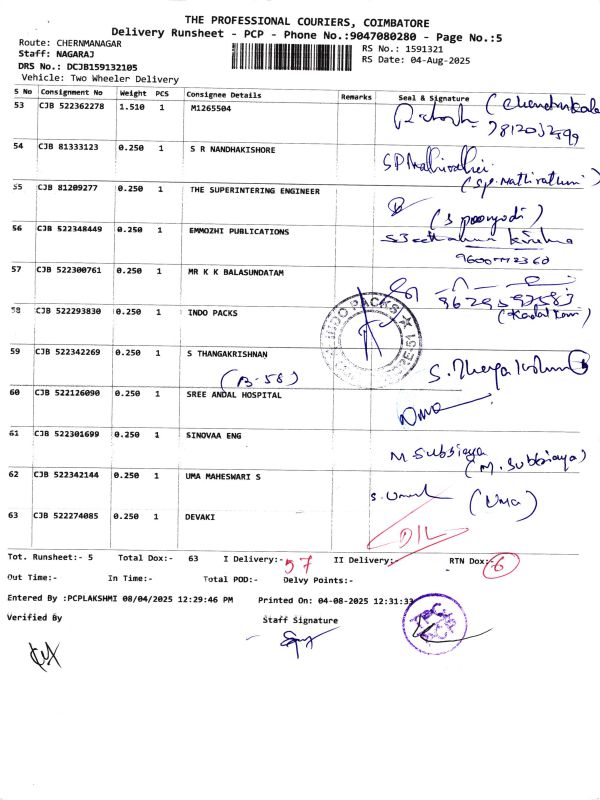 THE PROFESSIONAL COURIERS, COIMBATORE
Delivery Runsheet - PCP - Phone No.:9047080280 - Page No.:5
Route: CHERNMANAGAR
Staff: NAGARAJ
RS No.: 1591321
DRS No.: DCJB159132105
RS Date: 04-Aug-2025
Vehicle: Two Wheeler Delivery
S No Consignment No Weight PCS Consignee Details Remarks Seal & Signature
53 CJB 522362278 1.510 1 M1265504
54 CJB 81333123 0.250 1 S R NANDHAKISHORE
(SP. Mathirathini)
55 CJB 81209277 0.250 1 THE SUPERINTERING ENGINEER
56 CJB 522348449 0.250 1 EMMOZHI PUBLICATIONS
57 CJB 522300761 0.250 1 MR K K BALASUNDATAM
9629597583
58 CJB 522293830 0.250 1 INDO PACKS
INDO PACKS
59 CJB 522342269 0.250 1 S THANGAKRISHNAN
(B-58)
60 CJB 522126090 0.250 1 SREE ANDAL HOSPITAL
Uma
61 CJB 522301699 0.250 1 SINOVAA ENG
M. Subbiaya
(M. Subbiaya)
62 CJB 522342144 0.250 1 UMA MAHESWARI S
(Uma)
63 CJB 522274085 0.250 1 DEVAKI
D/L
Tot. Runsheet:- 5 Total Dox:- 63 I Delivery:- 57 II Delivery:- RTN Dox:- 6
Out Time:- In Time:- Total POD:- Delvy Points:-
Entered By :PCPLAKSHMI 08/04/2025 12:29:46 PM Printed On: 04-08-2025 12:31:33
Verified By Staff Signature